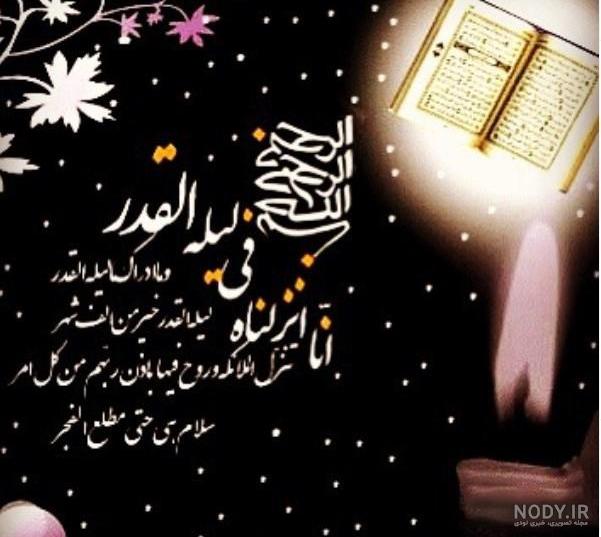 بسم الله الرحمن الرحیم
انّا انزلناه فی لیله القدر
وماادراک مالیله القدر
لیله القدر خیر من الف شهر
تنزّل الملائکه وروح فیها باذن ربّهم من کل امر
سلام هی حتی مطلع الفجر
NODY.IR
مجله تصویری، خبری نودی